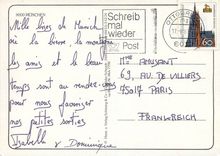 8000 MÜNCHEN
Mille bises de Munich
où la bière, la montagne
les amis et le beau
temps sont au rendez-vous
pour nous favoriser
nos petites sorties
Isabelle et Dominique
Schreib
mal
wieder
Post
60
Mme AMUSANT
63, AV. DE VILLIERS
75017 PARIS
FRANKREICH